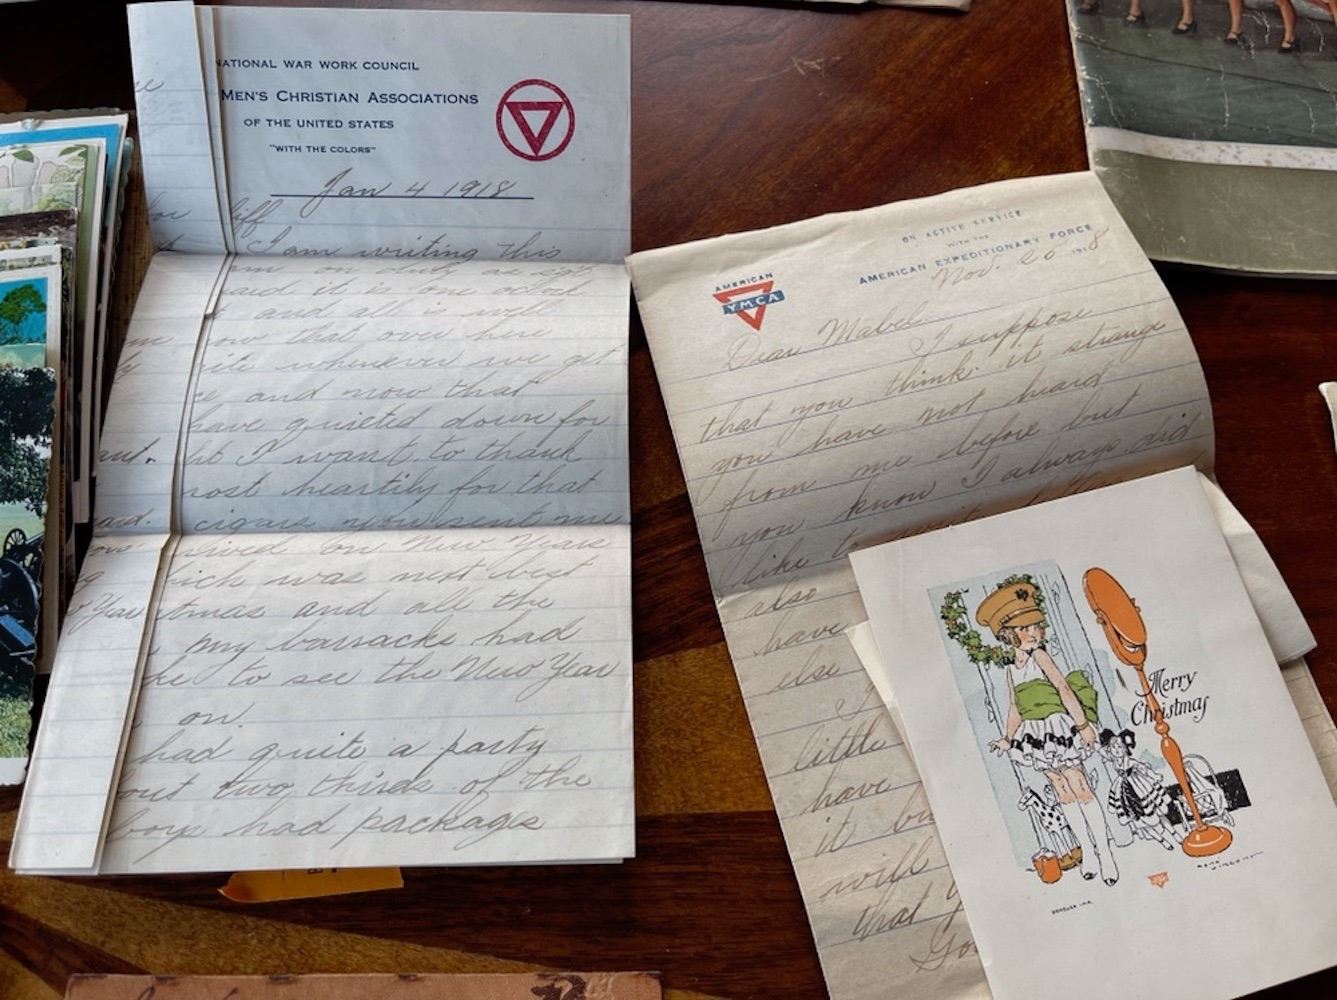 NATIONAL WAR WORK COUNCIL
MEN'S CHRISTIAN ASSOCIATIONS
OF THE UNITED STATES
"WITH THE COLORS"
Jan 4 1918
I am writing this
on duty as
it is one oclock
and all is well
now that over here
whenever we get
and now that
have quieted down for
I want to thank
most heartily for that
cigars you sent me
on New Years
hich was next best
tmas and all the
my barracks had
to see the New Year
on.
had quite a party
out two thirds of the
boys had packages
ON ACTIVE SERVICE
WITH THE
AMERICAN EXPEDITIONARY FORCE
AMERICAN
YMCA
Nov. 1918
Dear Mabel
I suppose
that you think it strange
you have not heard
from me before but
you know I always did
like to
also
have
else
I
little
have
it bu
will
that y
Merry
Christmas